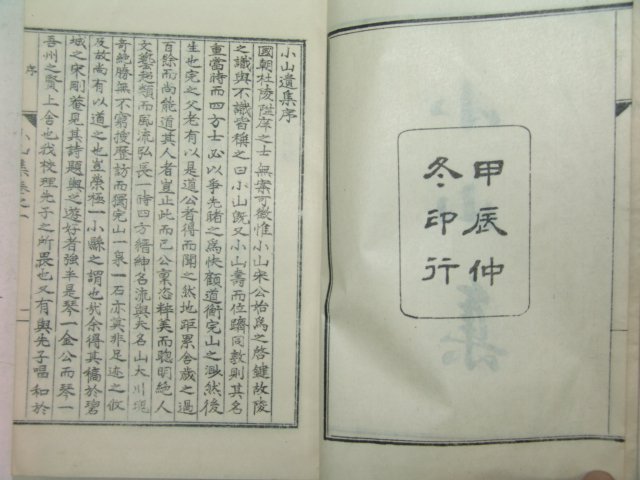 甲辰仲
冬印行
小山遺集序
國朝杜陵隱庠之士無案可徵惟小山宋公始爲之啓鍵故陵
之識與不識皆稱之曰小山旣又小山壽而位躋同敦則其名
重當時而四方士必以爭先睹之爲快顧道衡完山之測然後
生也完之父老有以是道公者得而聞之然地距累舍歲之過
百除而尚能道其人者豈止此而已公稟姿粹美而聰明絶人
文藝超類而風流弘長一時四方縉紳名流與夫名山大川瑰
奇絶勝無不窮搜歷訪而獨完山一泉一石亦莫非足迹之收
及故尚有以道之也豈榮極一小縣之謂也我余得其稿於碧
城之宋剛菴見其詩題與之遊好者強半是琴一金公而琴一
吾州之賢上舍也我校理先子之所畏也又有與先子唱和於
序
小山集卷之一
一